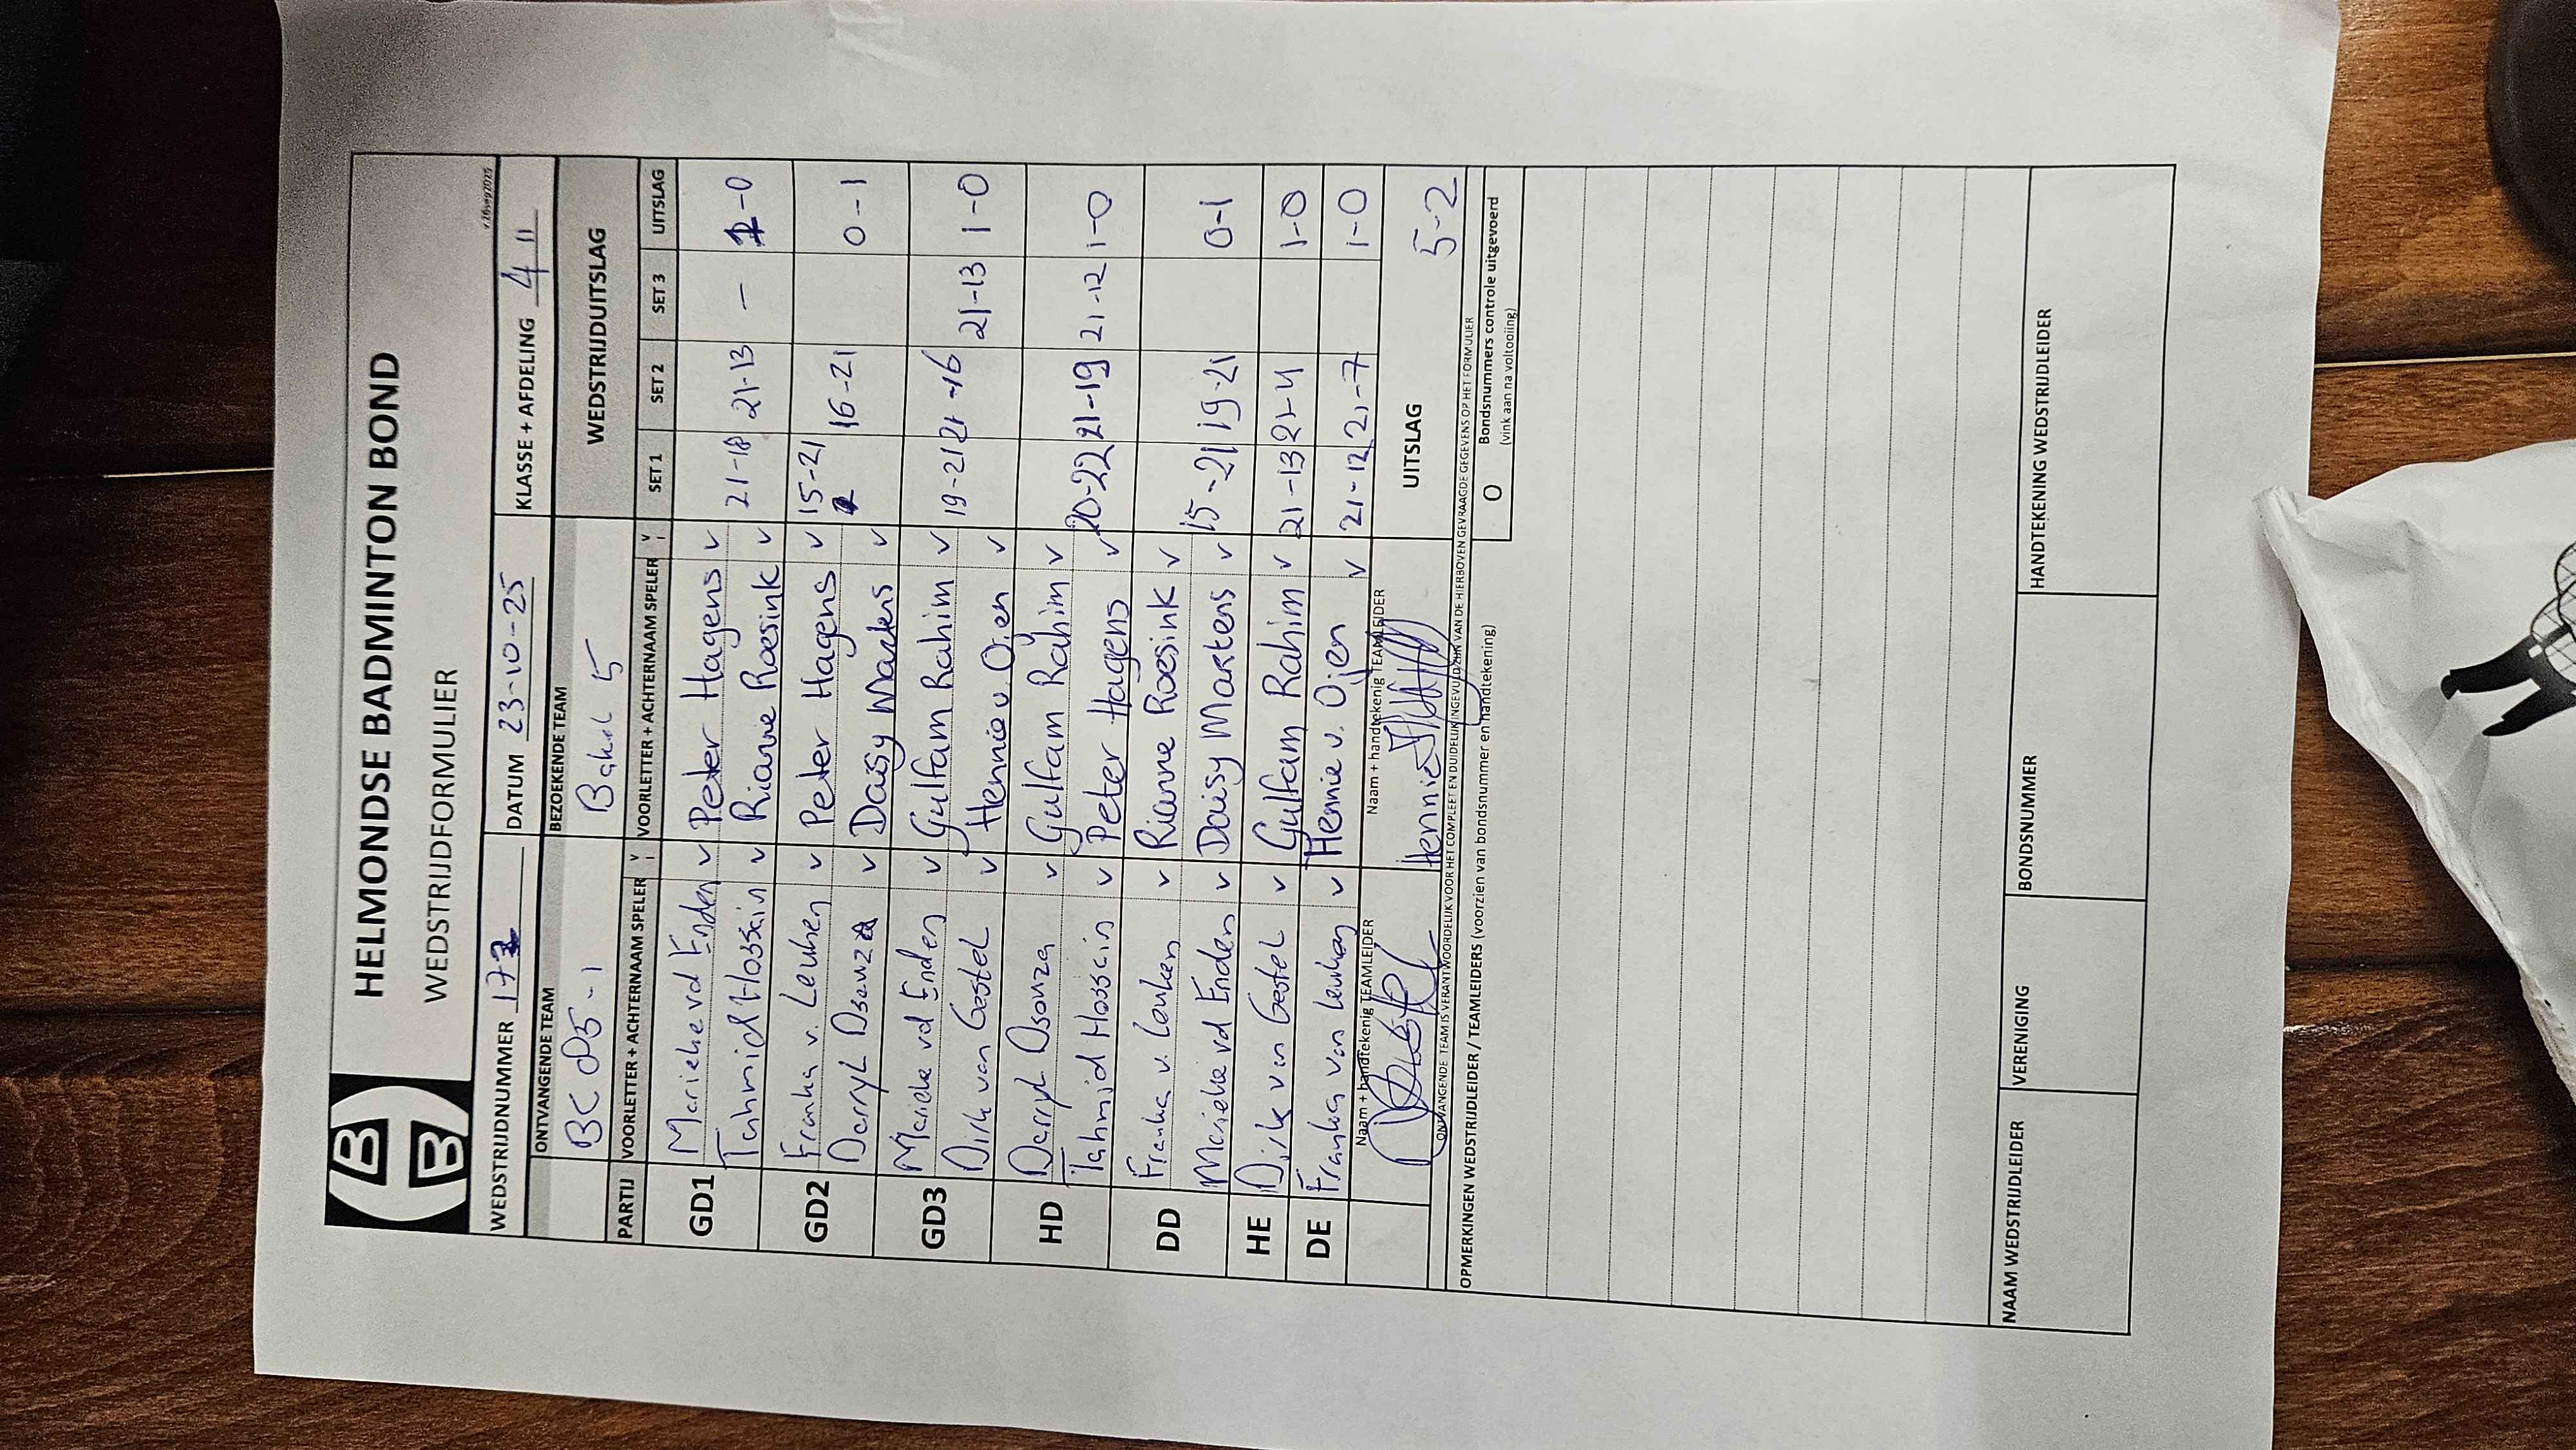 HELMONDSE BADMINTON BOND
WEDSTRIJDFORMULIER
v.16sep2025
WEDSTRIJDNUMMER 173 DATUM 23-10-25 KLASSE + AFDELING 4 11
ONTVANGENDE TEAM BEZOEKENDE TEAM WEDSTRIJDUITSLAG
BC 085-1 Bakel 5
PARTIJ VOORLETTER + ACHTERNAAM SPELER V VOORLETTER + ACHTERNAAM SPELER V SET 1 SET 2 SET 3 UITSLAG
GD1 Marieke vd Enden v Peter Hagens v
Tahmid Hossain v Rianne Roesink v 21-18 21-13 – 1-0
GD2 Franka v. Leuken v Peter Hagens v 15-21
Darryl Dsouza v Daisy Martens v 16-21 0-1
GD3 Marieke vd Enden v Gulfam Rahim v
Dirk van Gestel v Hennie v. Oijen v 19-21 21-16 21-13 1-0
HD Darryl Dsouza v Gulfam Rahim v
Tahmid Hossain v Peter Hagens v 20-22 21-19 21-12 1-0
DD Franka v. Leuken v Rianne Roesink v
Marieke vd Enden v Daisy Martens v 15-21 19-21 0-1
HE Dirk van Gestel v Gulfam Rahim v 21-13 21-4 1-0
DE Franka van Leuken v Hennie v. Oijen v 21-12 21-7 1-0
Naam + handtekenig TEAMLEIDER Naam + handtekenig TEAMLEIDER UITSLAG 5-2
Hennie
ONTVANGENDE TEAM IS VERANTWOORDELIJK VOOR HET COMPLEET EN DUIDELIJK INGEVULD ZIJN VAN DE HIERBOVEN GEVRAAGDE GEGEVENS OP HET FORMULIER
OPMERKINGEN WEDSTRIJDLEIDER / TEAMLEIDERS (voorzien van bondsnummer en handtekening)
O Bondsnummers controle uitgevoerd
(vink aan na voltooiing)
NAAM WEDSTRIJDLEIDER VERENIGING BONDSNUMMER HANDTEKENING WEDSTRIJDLEIDER